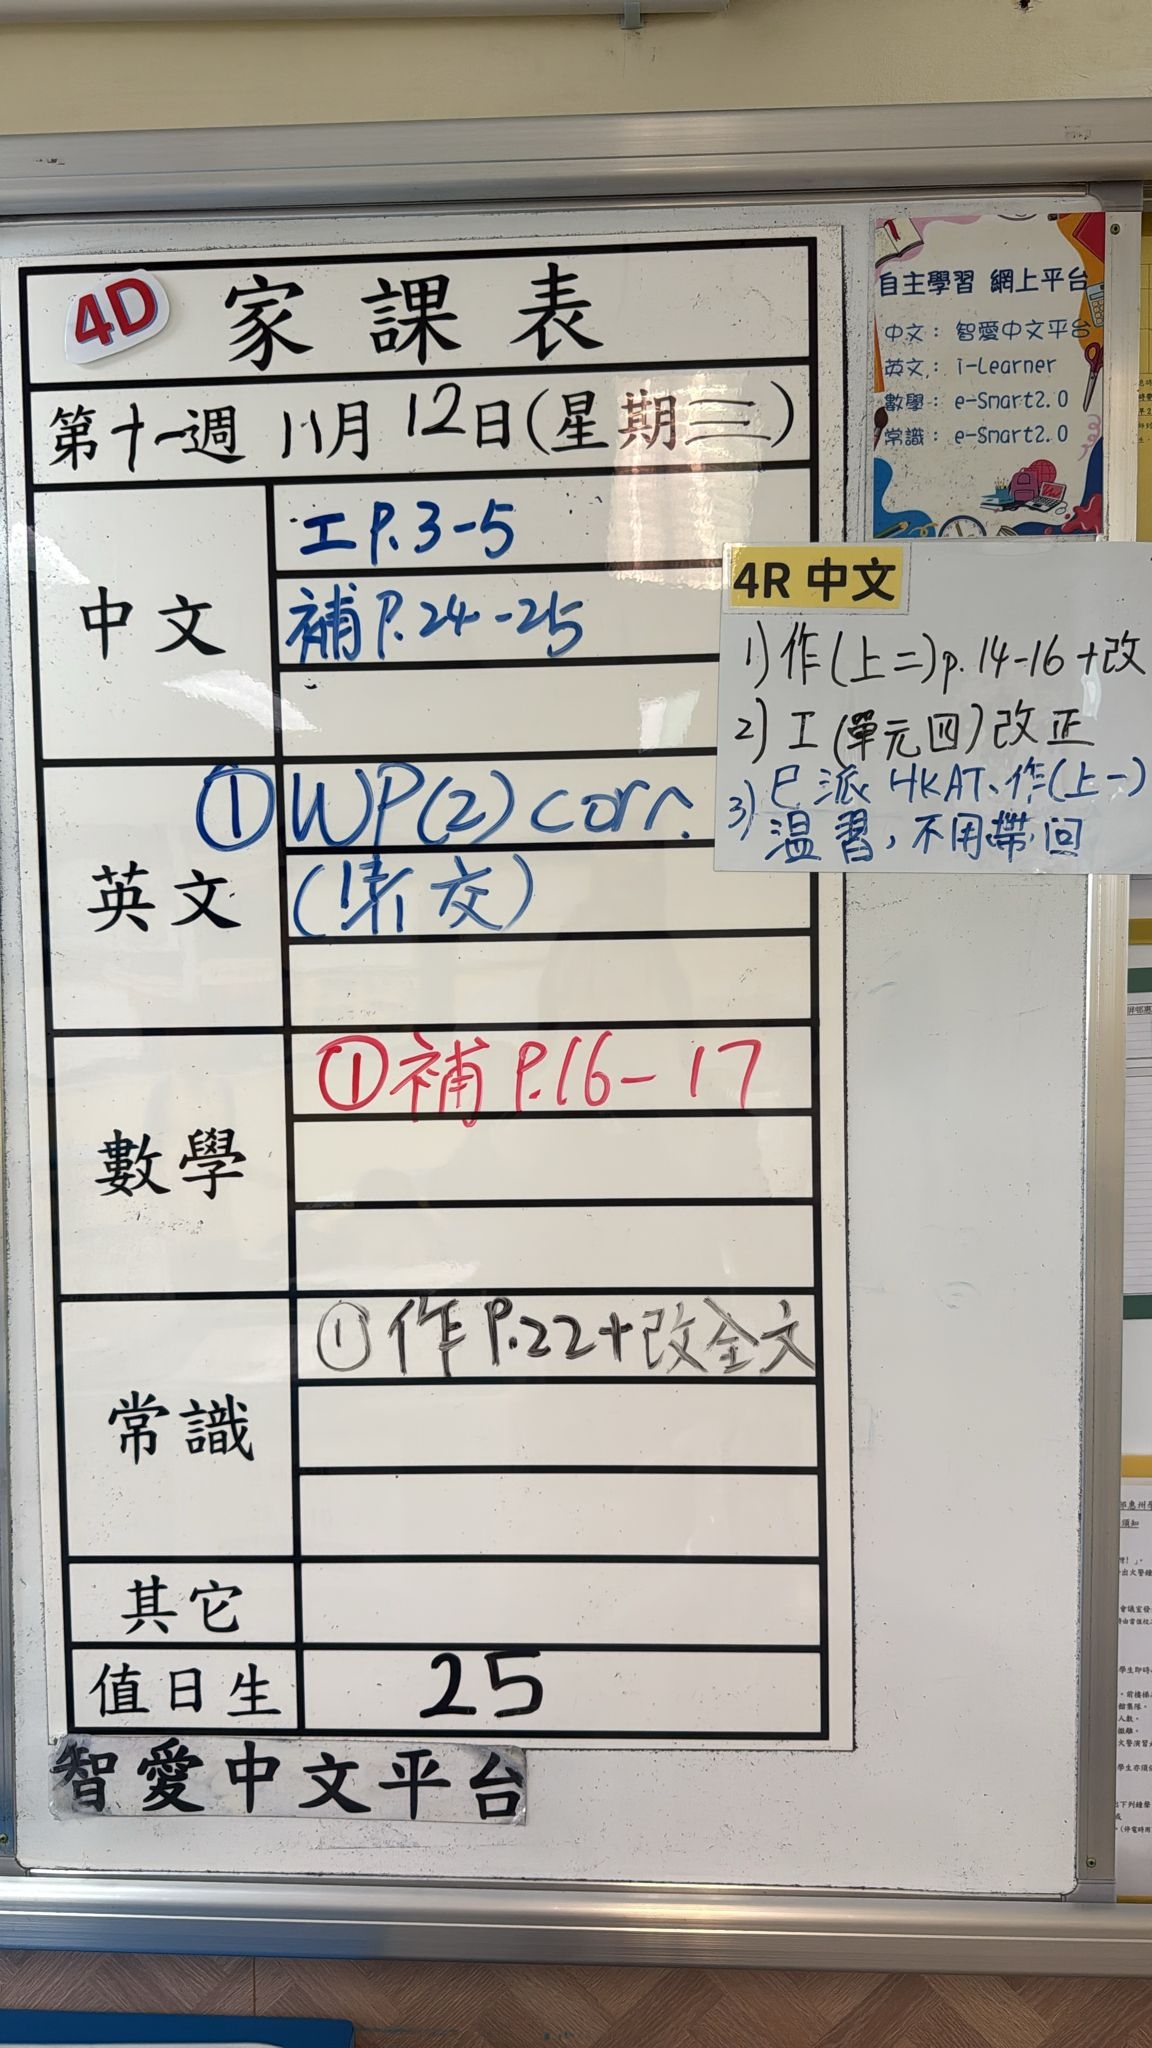 4D 家課表
第十一週 11月12日(星期三)
中文
工P.3-5
補P.24-25
英文
①WP(2)corr.
(未交)
數學
①補P.16-17
常識
①作P.22+改全文
其它
值日生
25
智愛中文平台
自主學習 網上平台
中文： 智愛中文平台
英文： i-Learner
數學： e-Smart2.0
常識： e-Smart2.0
4R 中文
1)作(上二)p.14-16+改
2)工(單元四)改正
3)已派HKAT、作(上一)
溫習，不用帶回